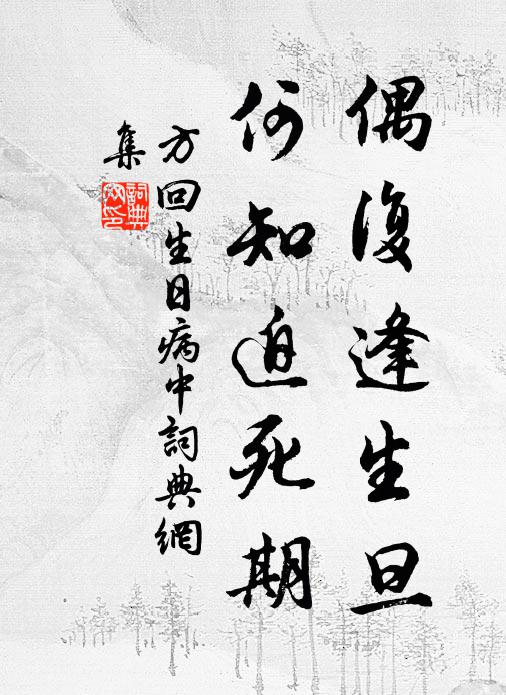 偶復逢生旦
何知迫死期
方回生日病中詞典網
集
詞典網印